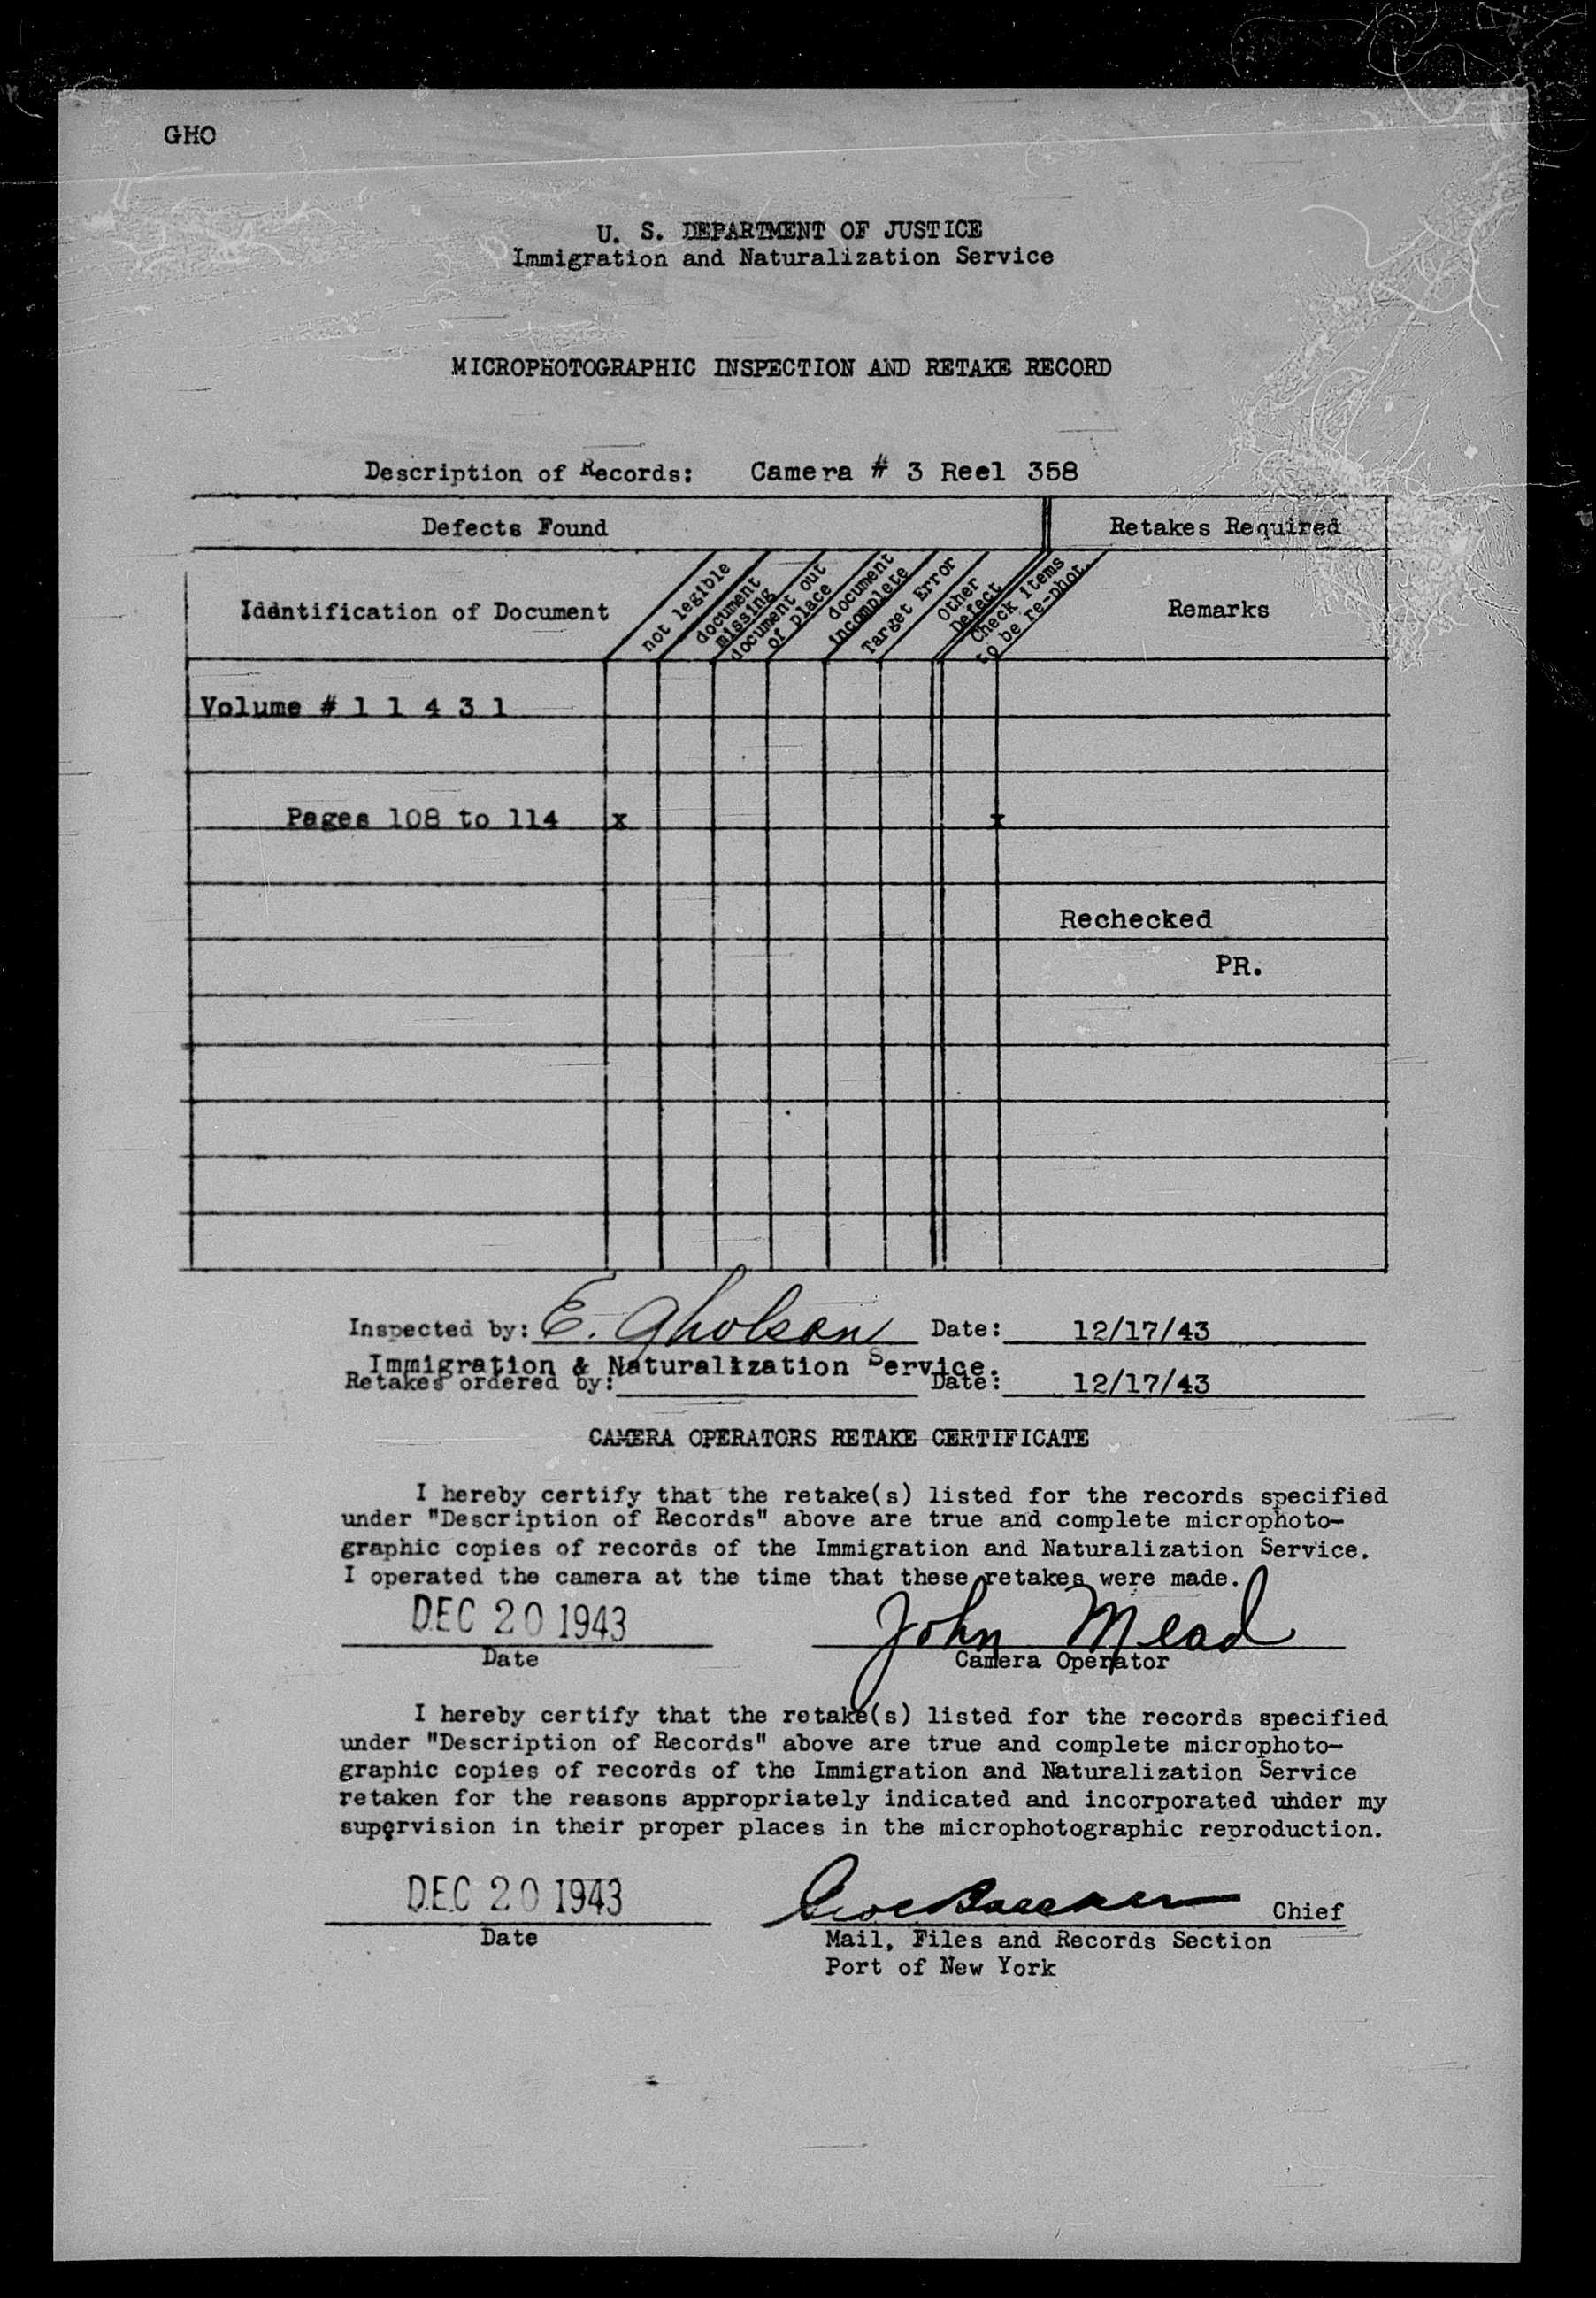 GHO
U. S. DEPARTMENT OF JUSTICE
Immigration and Naturalization Service
MICROPHOTOGRAPHIC INSPECTION AND RETAKE RECORD
Description of Records: Camera # 3 Reel 358
Defects Found Retakes Required
Idantification of Document
not legible
document missing
document out of place
document incomplete
Target Error
Other Defect
Check items to be re-phot.
Remarks
Volume # 1 1 4 3 1
Pages 108 to 114 x x
Rechecked
PR.
Inspected by: E. Gholson Date: 12/17/43
Immigration & Naturalization Service.
Retakes ordered by: Date: 12/17/43
CAMERA OPERATORS RETAKE CERTIFICATE
I hereby certify that the retake(s) listed for the records specified
under "Description of Records" above are true and complete microphoto-
graphic copies of records of the Immigration and Naturalization Service.
I operated the camera at the time that these retakes were made.
DEC 20 1943 John Mead
Date Camera Operator
I hereby certify that the retake(s) listed for the records specified
under "Description of Records" above are true and complete microphoto-
graphic copies of records of the Immigration and Naturalization Service
retaken for the reasons appropriately indicated and incorporated under my
supervision in their proper places in the microphotographic reproduction.
DEC 20 1943 Chief
Date Mail, Files and Records Section
Port of New York